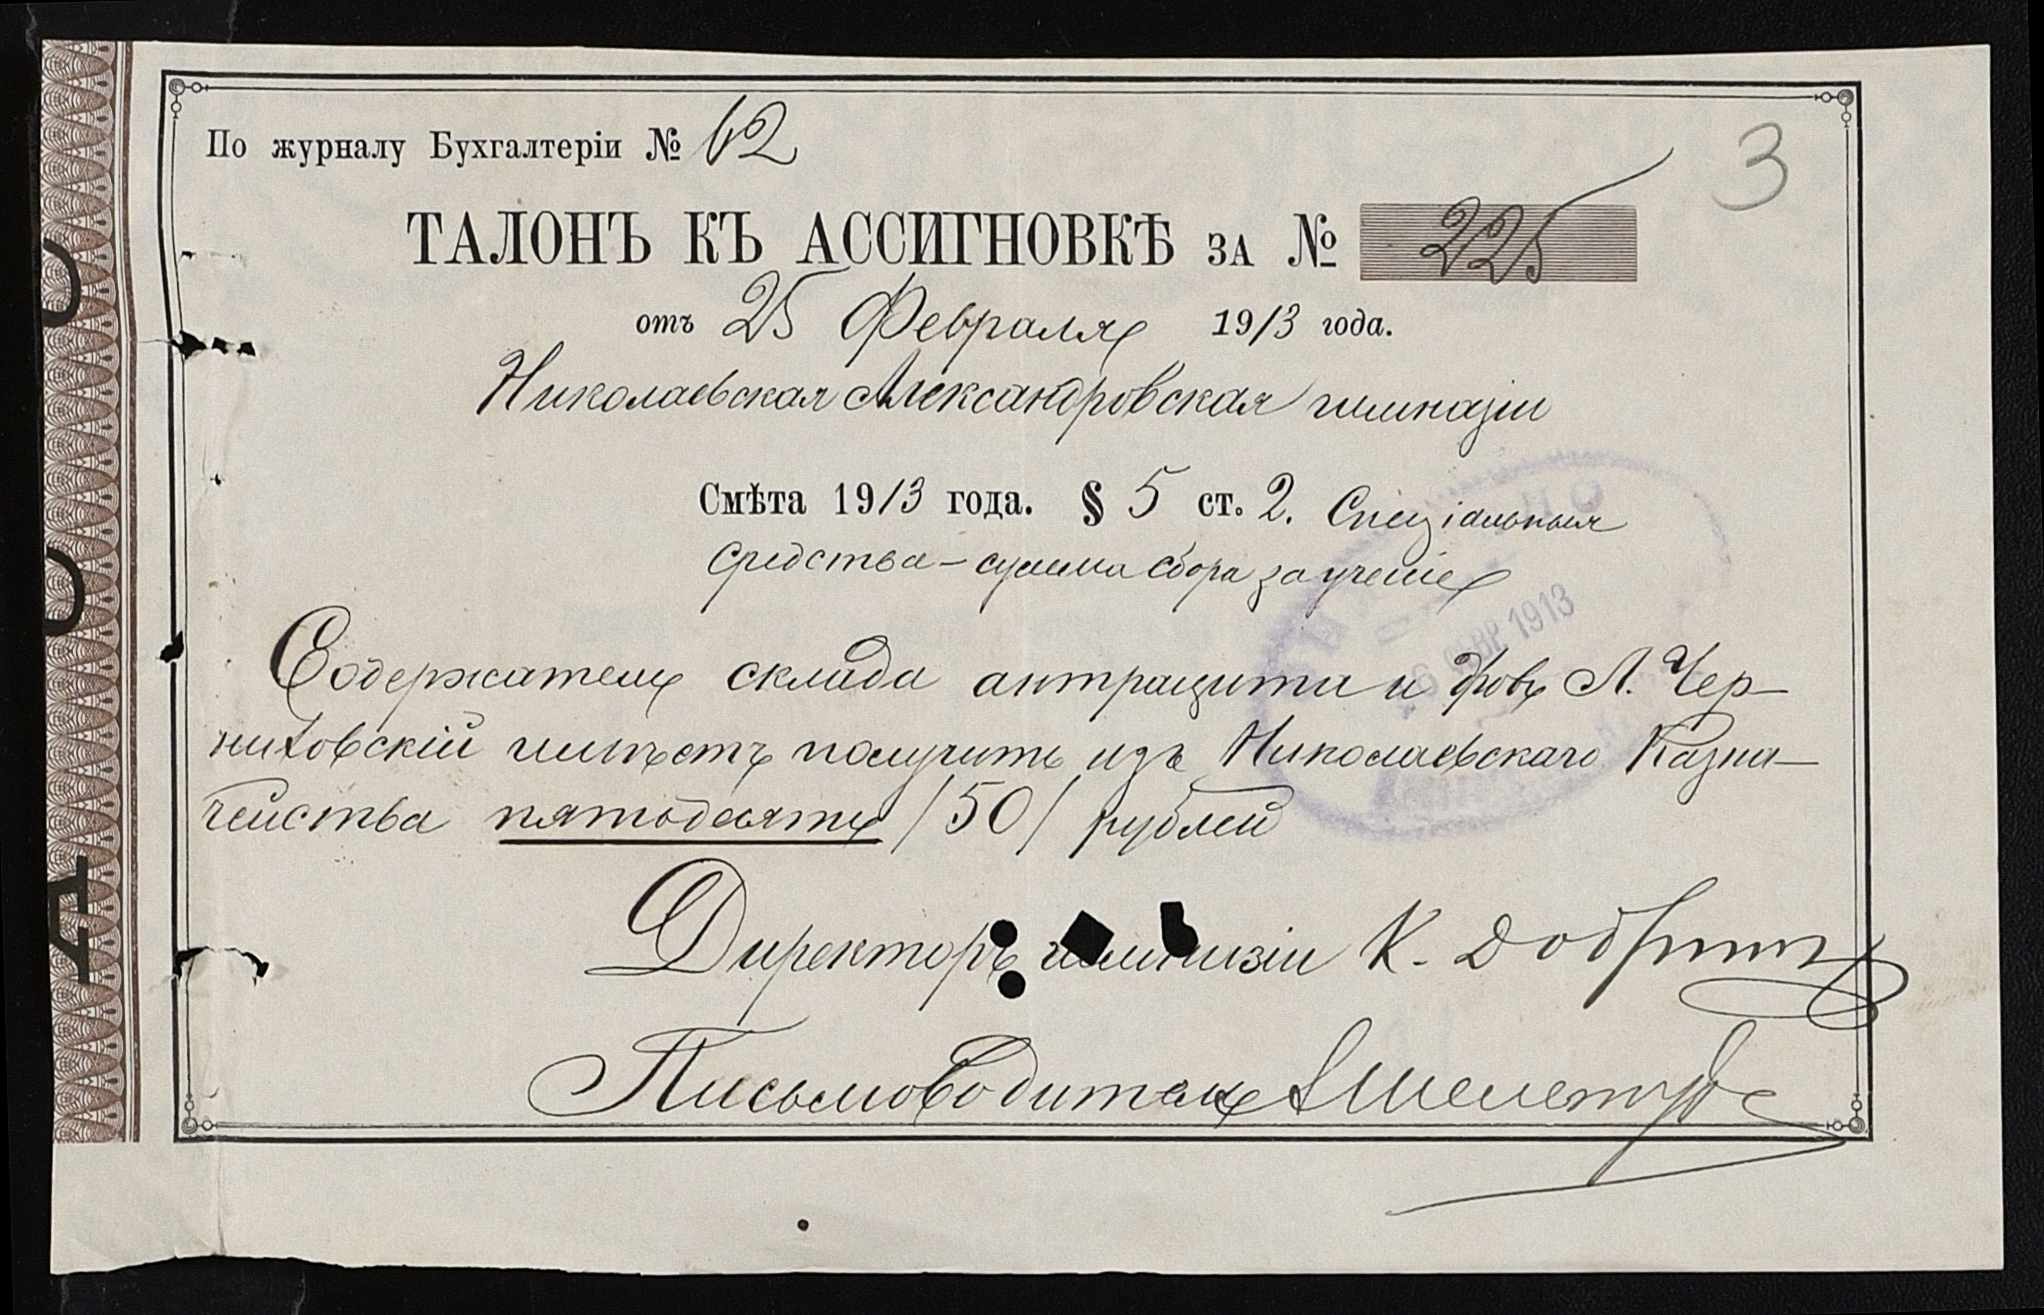 По журналу Бухгалтеріи № 62
3
ТАЛОНЪ КЪ АССИГНОВКѢ ЗА № 225
отъ 25 Февраля 1913 года.
Николаевская Александровская гимназіи
Смѣта 1913 года. § 5 ст. 2. Спеціальныя
средства – сумма сбора за ученіе
Содержатель склада антрацита и дровъ Л. Чер-
ниховскій имѣетъ получить изъ Николаевскаго Казна-
чейства пятьдесятъ /50/ рублей
ФЕВР 1913
Директоръ гимназіи К. Добрин
Письмоводитель